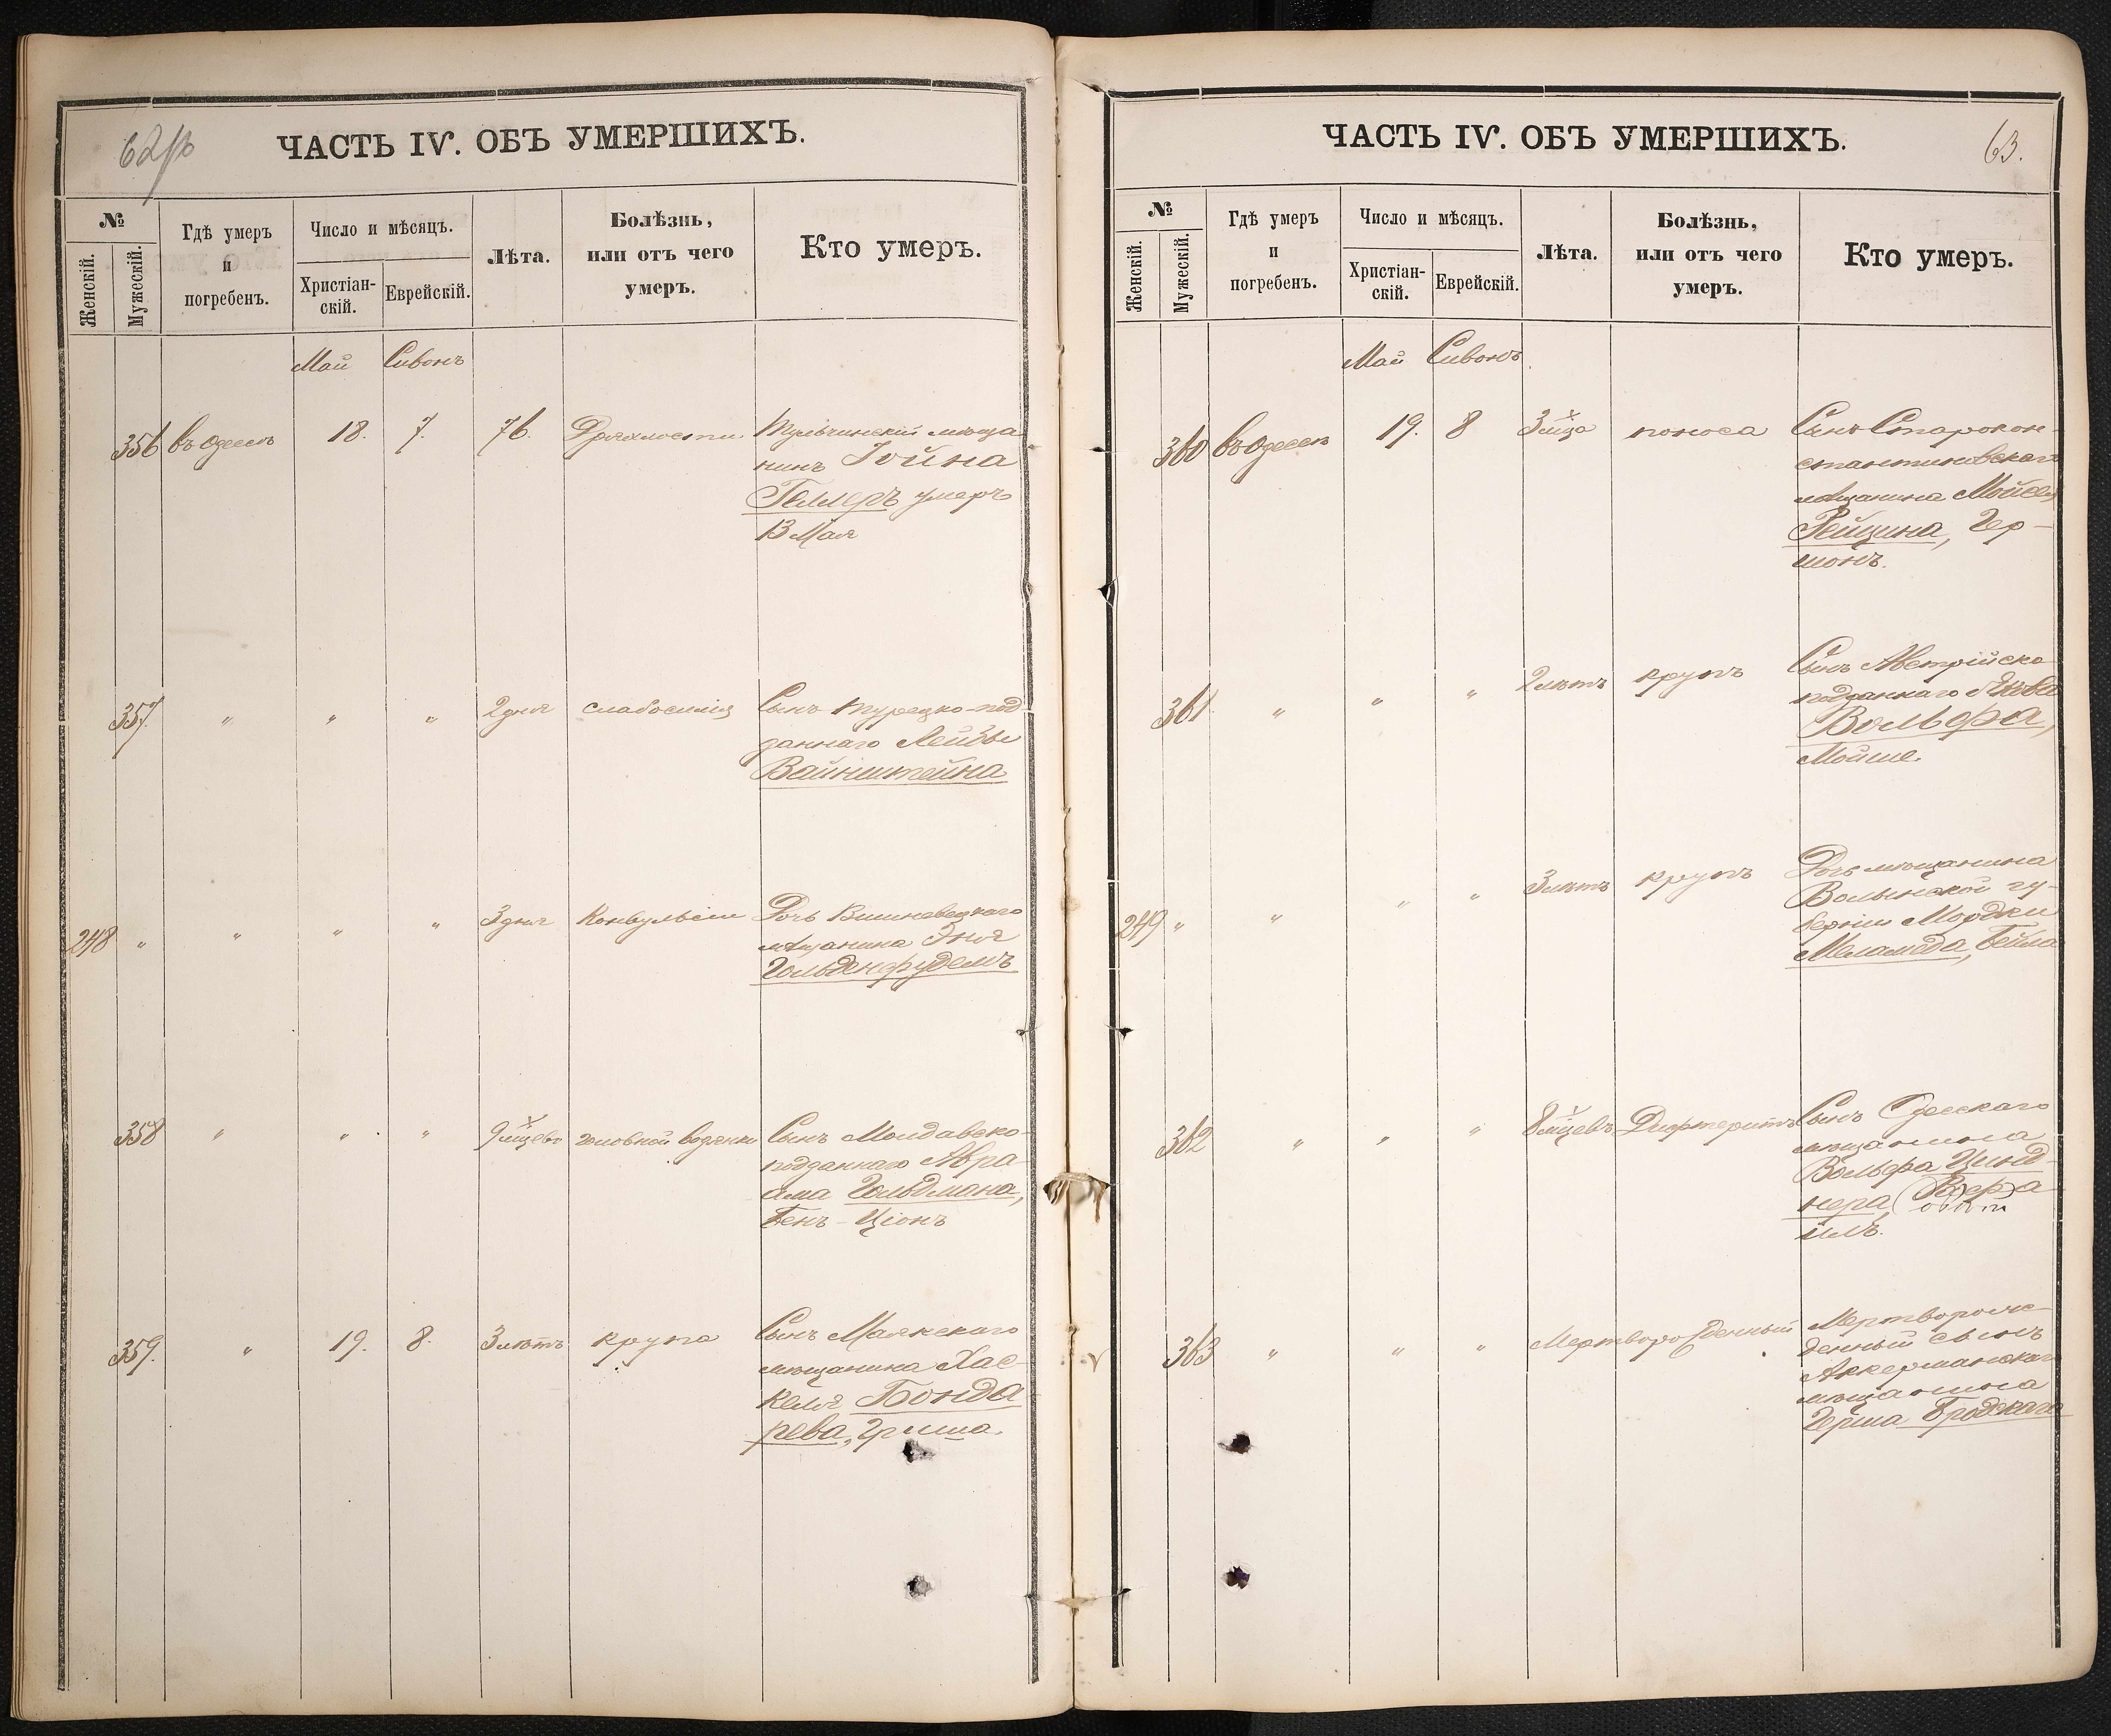 62 об
ЧАСТЬ IV. ОБЪ УМЕРШИХЪ.
№
Женскій.
Мужескій.
Гдѣ умеръ
и
погребенъ.
Число и мѣсяцъ.
Христіан-
скій.
Еврейскій.
Лѣта.
Болѣзнь,
или отъ чего
умеръ.
Кто умеръ.
Май Сивонъ
356 въ Одессѣ 18. 7. 76. Дряхлости Тульчинскій мѣща
нинъ Іойна
Геллеръ умеръ
13 Мая
357. " " " 2 дня слабосилія Сынъ турецко-под
даннаго Лейбы
Вайнштейна
248 " " " " 3 дня Конвульсіи Дочь Вишневецкаго
мѣщанина Эня
Гольденфудемъ
358 " " " 9 мѣсцевъ головной водянки Сынъ Молдавско-
подданнаго Авра-
ама Гольдмана,
Бенъ-Ціонъ
359. " 19. 8. 3 лѣтъ крупа Сынъ Маякскаго
мѣщанина Хас-
келя Бонда
рева, Гриша.
ЧАСТЬ IV. ОБЪ УМЕРШИХЪ.
63.
№
Женскій.
Мужескій.
Гдѣ умеръ
и
погребенъ.
Число и мѣсяцъ.
Христіан-
скій.
Еврейскій.
Лѣта.
Болѣзнь,
или отъ чего
умеръ.
Кто умеръ.
Май Сивонъ
360 въ Одессѣ 19. 8 3 мѣца поноса Сынъ Старокон-
стантиновскаго
мѣщанина Мойсея
Рейцина, Гер-
шонъ.
361 " " " 2 лѣтъ крупъ Сынъ Австрійско
подданнаго Якова
Вольфа,
Мойше.
249 " " " " 3 лѣтъ крупъ Дочь мѣщанина
Волынской гу-
берніи Мордки
Меламеда, Бейла
362 " " " 8 мѣцевъ Дифтеритъ Сынъ Одесскаго
мѣщанина
Вольфа Цинд-
нера
илъ.
363 " " " Мертворожденный Мертворож-
денный сынъ
Аккерманскаго
мѣщанина
Герша Бродскаго